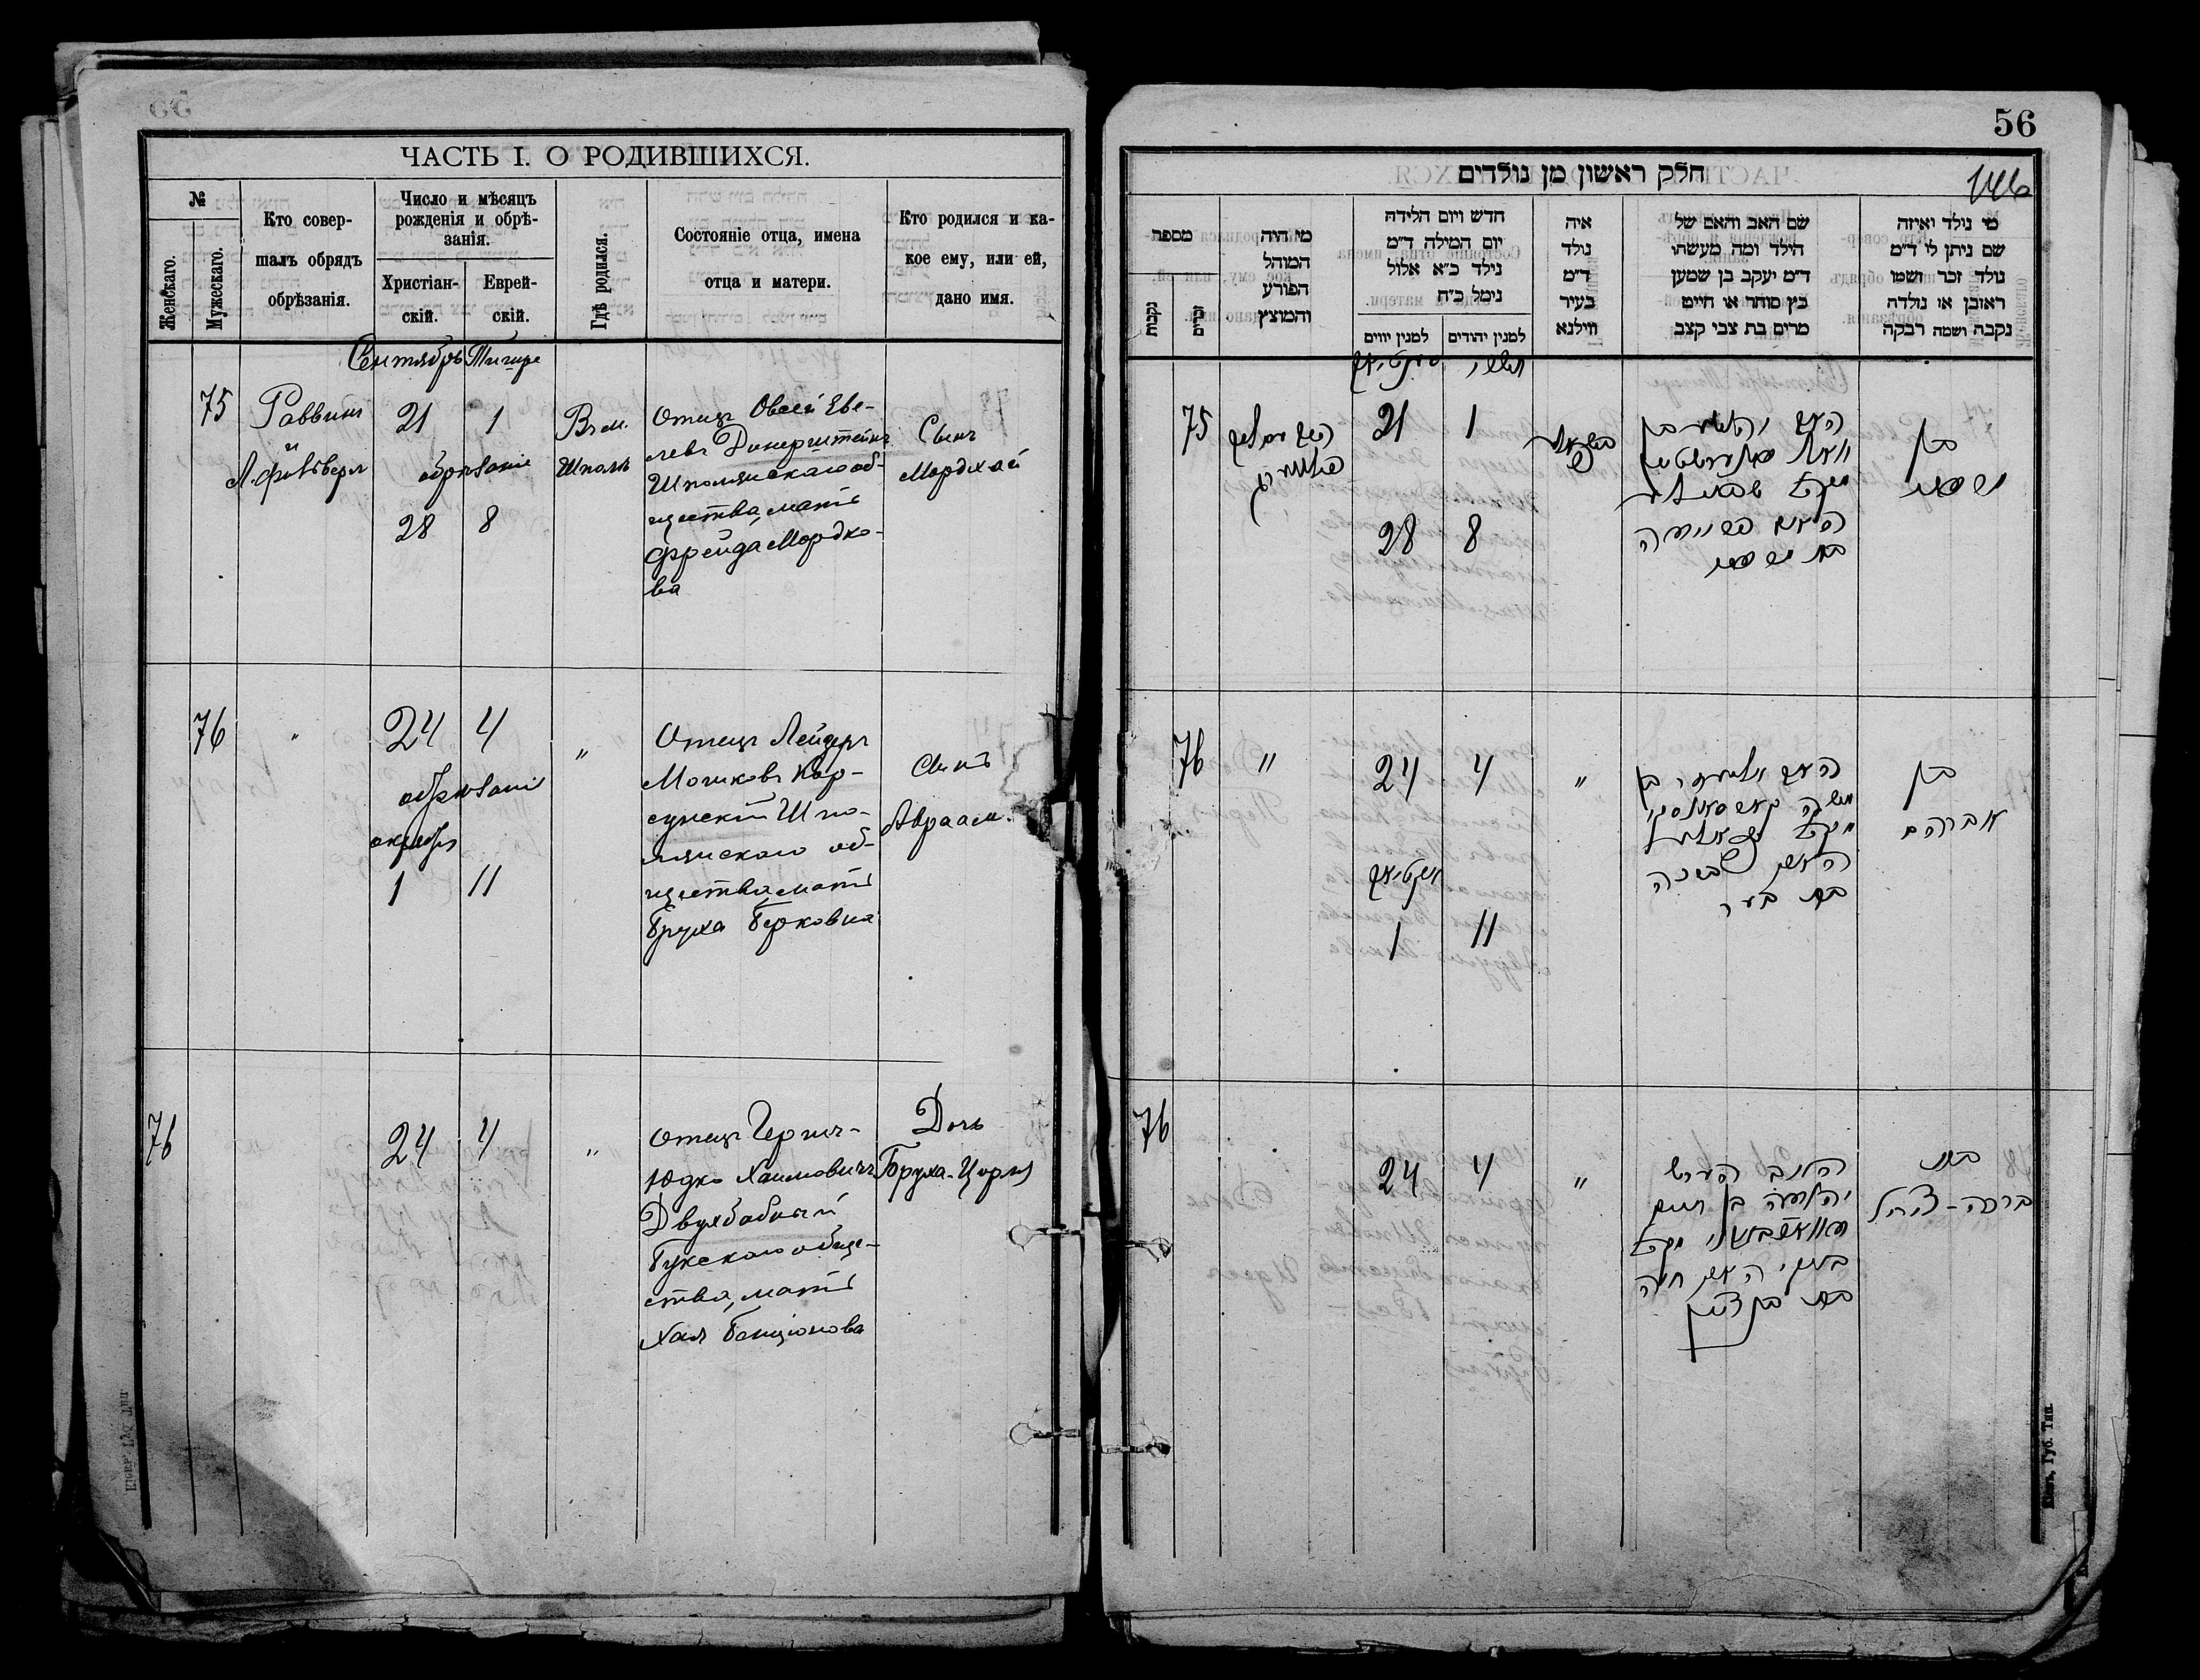 ЧАСТЬ I. О РОДИВШИХСЯ.
№
Женскаго.
Мужескаго.
Кто совер-
шалъ обрядъ
обрѣзанія.
Число и мѣсяцъ
рожденія и обрѣ-
занія.
Христіан-
скій.
Еврей-
скій.
Гдѣ родился.
Состояніе отца, имена
отца и матери.
Кто родился и ка-
кое ему, или ей,
дано имя.
Сентябрь Тишре
75
Раввинъ
и
21 1
обрѣзаніе
28 8
Въ м.
Шполѣ
Отецъ ОвсейЕве-
левъ Динерштейнъ
Шполянскаго об-
щества, мать
Фрейда Мордко-
ва
Сынъ
Мордхай
76
"
24 4
обрѣзаніе
октябрь
1 11
"
Отецъ Лейзеръ
Мошковъ Кор-
сунскій Шпо-
лянскаго об-
щества, мать
Бруха Берковна
Сынъ
Авраам.
76
24 4
"
Отецъ Герш-
Юдко Хаимовичъ
Двухбабный
Букскаго обще-
ства, мать
Хая Бенціонова
Дочь
Бруха-Цирля
56
146
חלק ראשון מן נולדים
מספר
נקבות
זכרים
מי היה
המוהל
הפורע
והמוצץ
חדש ויום הלידה
יום המילה ד״מ
נילד כ״א אלול
נימל כ״ח
למנין יווים
למנין יהודים
איה
נולד
ד״מ
בעיר
ווילנא
שם האב והאם של
הילד ומה מעשהו
ד״מ יעקב בן שמען
בץ סוחר או חייט
מרים בת צבי קצב
מי נולד ואיזה
שם ניתן לו ד״מ
נולד זכר ושמו
ראובן או נולדה
נקבה ושמה רבקה
תשרי
75
21 1
28 8
בן
מרדכי
בת מרדכי
76
"
24 4
"
1 11
האב אליעזר בן
משה
בן
אברהם
76
24 4
"
בן חיים
האם חיה
בת בן ציון
בת
ברכה-צירל
Кіевъ, Губ. Тип.